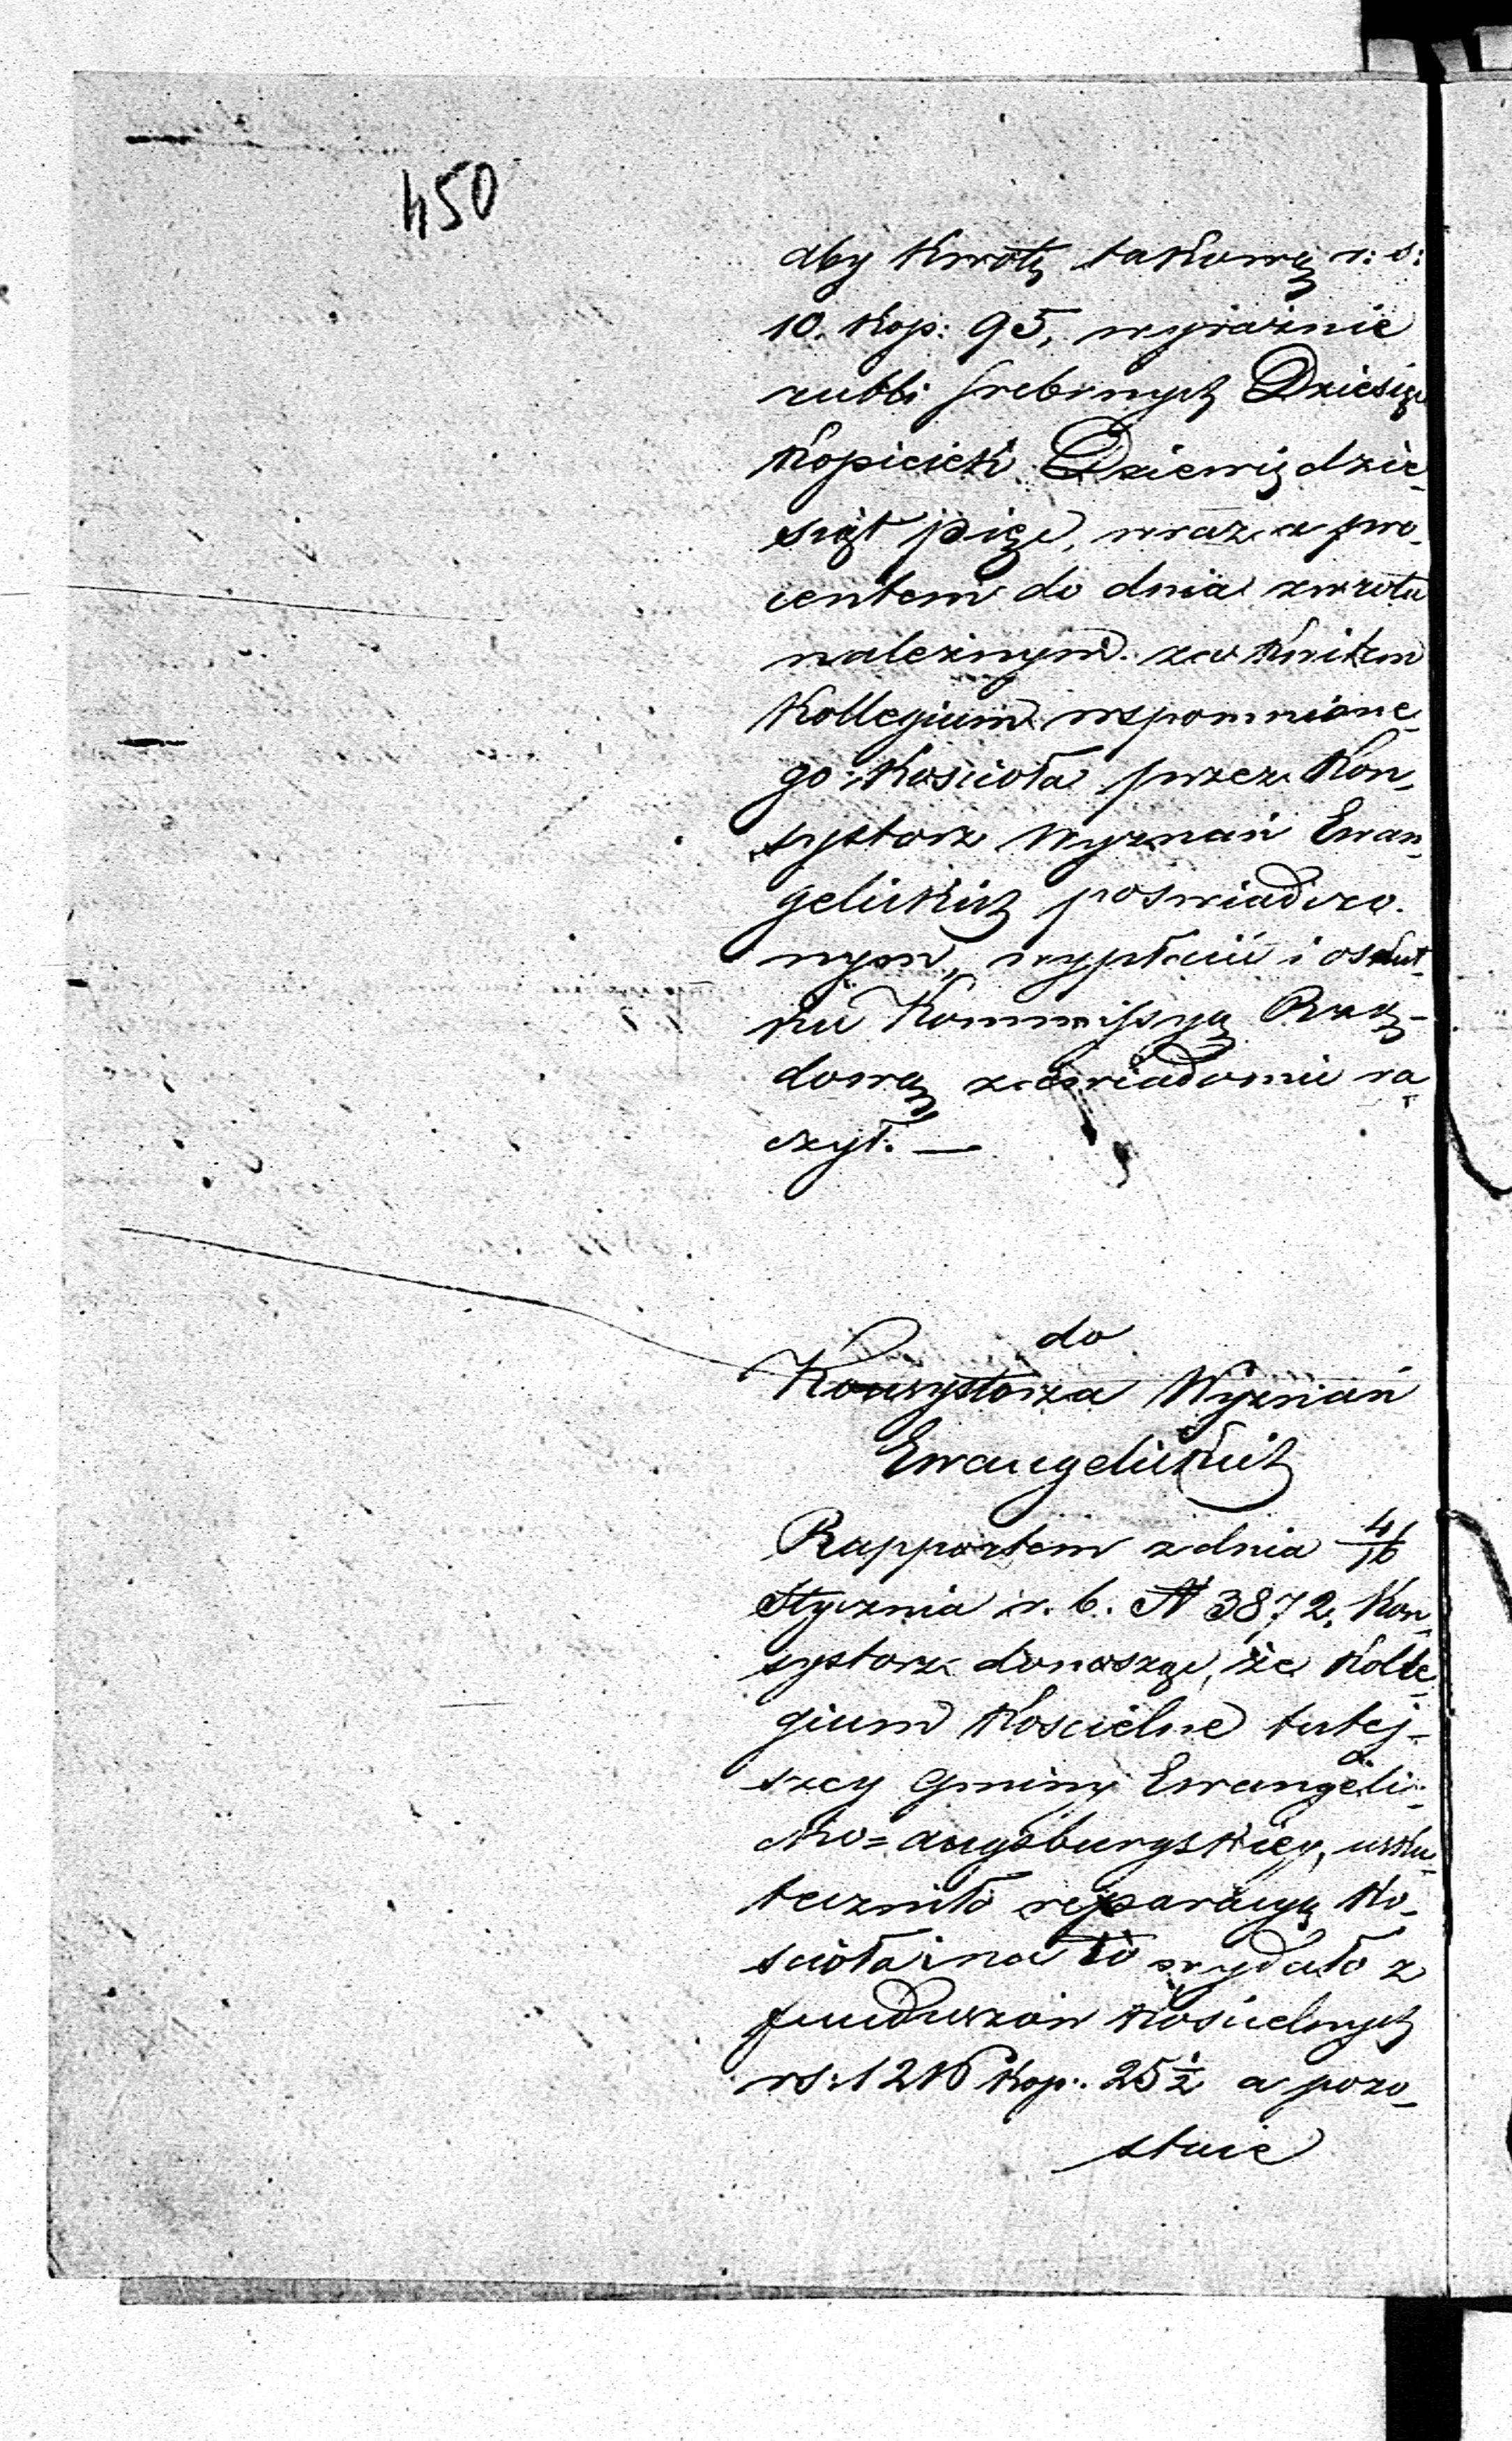 450
aby kwotę takową r: s:
10. kop: 95, wyraźnie
rubli srebrnych Dziesięć
kopieiek Dziewiędzie„
siąt pięć, wraz z pro„
centem do dnia zwrotu
należnym za kwitem
Kollegium wspomnione„
go Kościoła przez Kon„
systorz Wyznań Ewan„
gelickich poświadczo„
nym, wypłacić i o skut„
ku Kommissyą Rzą-
dową zawiadomić ra„
czył. —
do
Konsystorza Wyznań
Ewangelickich
Rapportem z dnia 4/16
Stycznia r. b. N 3872, Kon„
systorz donosząc, że Kolle„
gium Kościelne tutej-
szey Gminy Ewangeli„
cko=augsburgskiey, usku„
teczniło reparacyą Ko„
ścioła i na to wydało z
funduszów Kościelnych
rs: kop: 25½ a pozo„
staie